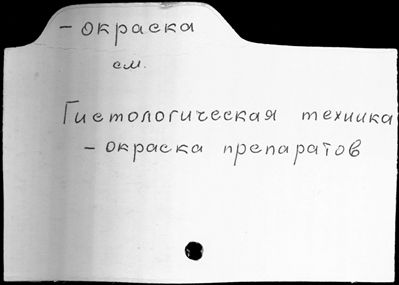 - окраска
см.
Гистологическая техника
- окраска препаратов